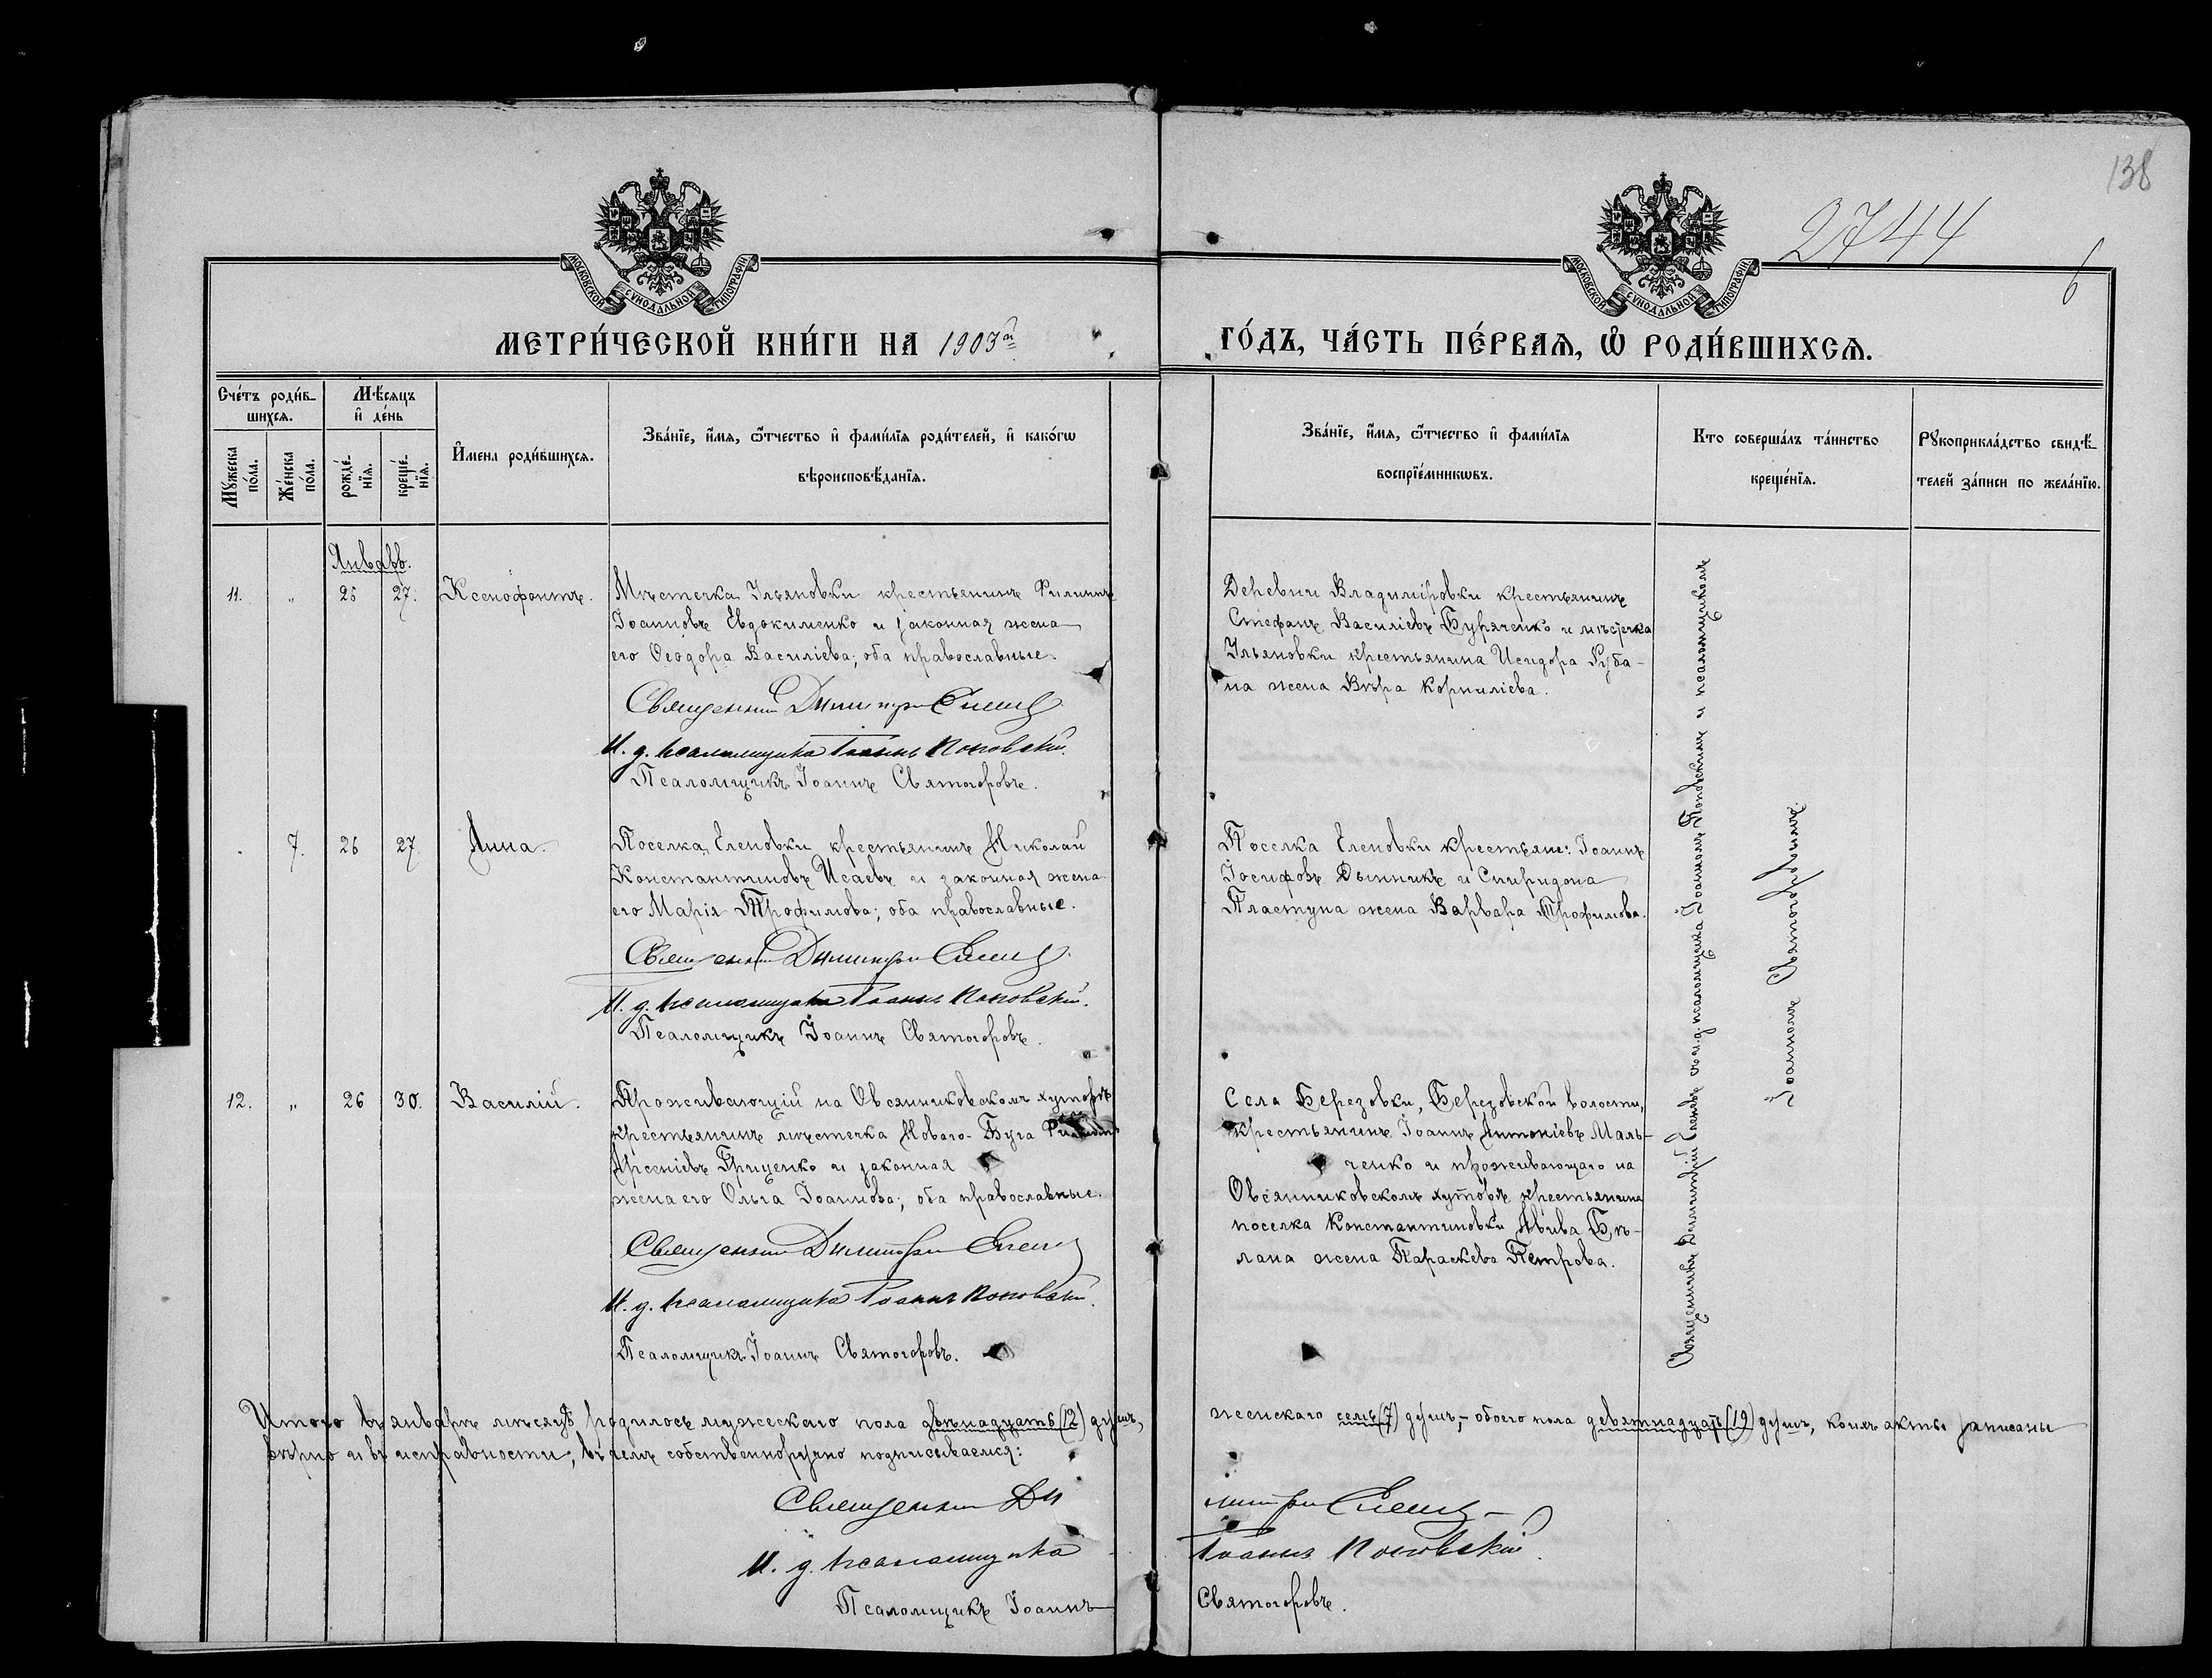 138
2744
6
МОСКОВСКОЙ СУНОДАЛЬНОЙ ТИПОГРАФІИ
МОСКОВСКОЙ СУНОДАЛЬНОЙ ТИПОГРАФІИ
МЕТРИ́ЧЕСКОЙ КНИ́ГИ НА 1903й ГО́ДЪ, ЧА́СТЬ ПЕ́РВАѦ, Ѽ РОДИ́ВШИХСѦ.
Сче́тъ роди́в-
шихсѧ.
Мꙋ́жеска по́ла.
Же́нска по́ла.
Мѣ́сѧцъ и҆ де́нь
рожде́-нїѧ.
креще́-нїѧ.
И҆мена роди́вшихсѧ.
Зва́нїе, и҆́мѧ, ѻ҆́тчество и҆ фами́лїѧ роди́телей, и҆ како́гѡ
вѣроисповѣ́данїѧ.
Зва́нїе, и҆́мѧ, ѻ҆́тчество и҆ фами́лїѧ
воспрїе́мникѡвъ.
Кто соверша́лъ та́инство
креще́нїѧ.
Рꙋкоприкла́дство свидѣ́-
телей за́писи по жела́нїю.
Январь.
11. " 25 27. Ксенофонтъ.
Мѣстечка Ильяновки крестьянинъ Филиппъ
Іоанновъ Евдокименко и законная жена
его Ѳеодора Василіева; оба православные.
Священникъ Димитрій
И. д. псаломщика Іоаннъ Поповскій.
Псаломщикъ Іоаннъ Святогоровъ.
Деревни Владиміровки крестьянинъ
Стефанъ Василіевъ Буряченко и мѣстечка
Ильяновки крестьянина Исидора Губа-
на жена Вѣра Корниліева.
7. 26 27 Анна.
Поселка Еленовки крестьянинъ Николай
Константиновъ Исаевъ и законная жена
его Марія Трофимова; оба православные.
Священникъ Димитрій
И. д. псаломщика Іоаннъ Поповскій.
Псаломщикъ Іоаннъ Святогоровъ.
Поселка Еленовки крестьяне: Іоаннъ
Іосифовъ Дынникъ и Спиридона
Пластуна жена Варвара Трофимова.
12. " 26 30. Василій.
Проживающій на Овсянниковскомъ хуторѣ
крестьянинъ мѣстечка Новаго-Буга
Арсеніевъ Гриценко и законная
жена его Ольга Іоаннова; оба православные.
Священникъ Димитрій
И. д. псаломщика Іоаннъ Поповскій.
Псаломщикъ Іоаннъ Святогоровъ.
Села Березовки, Березовской волости,
крестьянинъ Іоаннъ Антоніевъ Маль-
ченко и проживающаго на
Овсянниковскомъ хуторѣ крестьянина
поселка Константиновки Авива Бѣ-
лана жена Параскева Петрова.
Священникъ Димитрій съ и.д. псаломщика Іоанномъ Поповскимъ и псаломщикомъ
Іоанномъ Святогоровымъ.
Итого въ январѣ мѣсяцѣ родилось мужескаго пола двѣнадцать (12) душъ, женскаго семь (7) душъ, – обоего пола девятнадцать (19) душъ, коихъ акты записаны
вѣрно и въ исправности; въ чемъ собственноручно подписываемся:
Священникъ Димитрій
И. д. псаломщика Іоаннъ Поповскій.
Псаломщикъ Іоаннъ Святогоровъ.